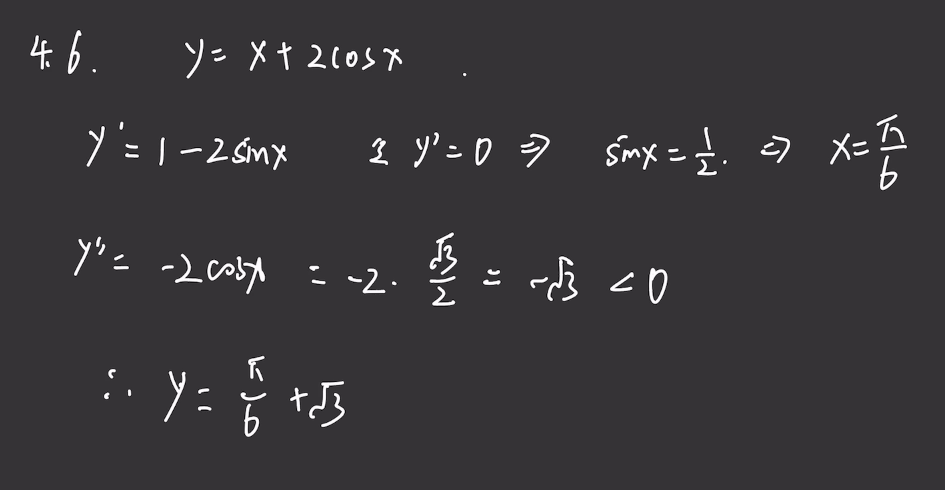 4.6. y = x + 2cosx.
y' = 1 - 2sinx 令 y' = 0 ⇒ sinx = 1/2. ⇒ x = π/6
y'' = -2cosx = -2 · √3/2 = -√3 < 0
∴ y = π/6 + √3